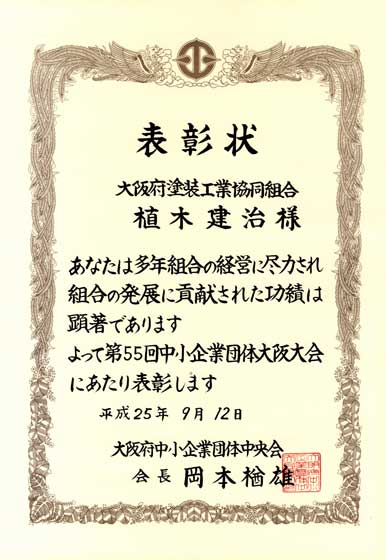 表彰状
大阪府塗装工業協同組合
植木建治様
あなたは多年組合の経営に尽力され
組合の発展に貢献された功績は
顕著であります
よって第55回中小企業団体大阪大会
にあたり表彰します
平成25年 9月 12日
大阪府中小企業団体中央会
会長 岡本楢雄